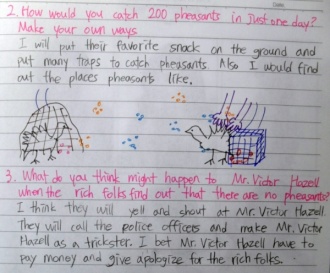 Date.
2. How would you catch 200 pheasants in Just one day?
Make your own ways
I will put their favorite snack on the ground and
put many traps to catch pheasants Also I would find
out the places pheasants like.
3. What do you think might happen to Mr. Victor Hazell
when the rich folks find out that there are no pheasants?
I think they will yell and shout at Mr. Victor Hazell.
They will call the police officers and make Mr. Victor
Hazell as a trickster. I bet Mr. Victor Hazell have to
pay money and give apologize for the rich folks.